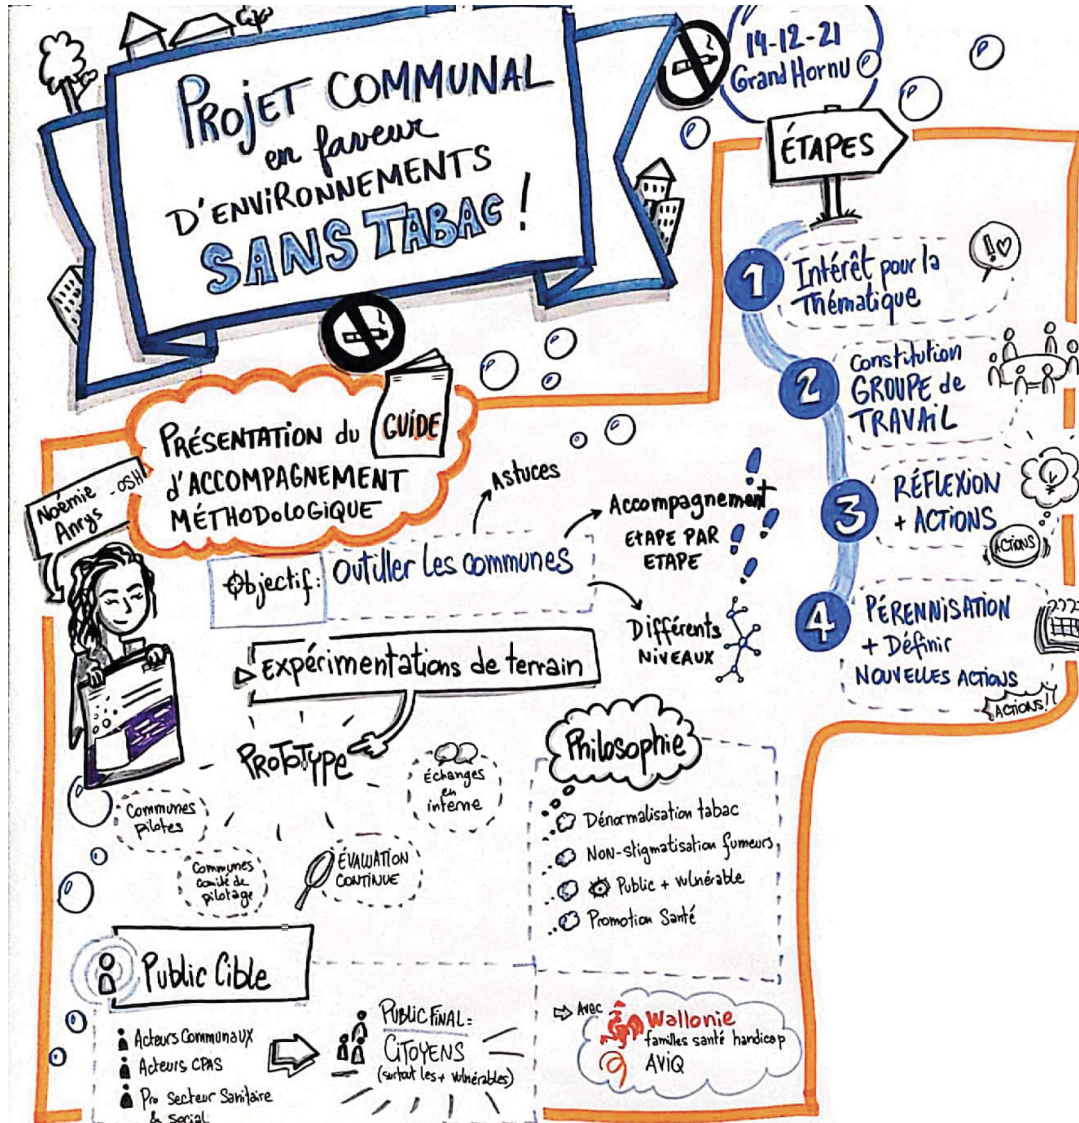 PROJET COMMUNAL
en faveur
D'ENVIRONNEMENTS
SANS TABAC !
14-12-21
Grand Hornu
ÉTAPES
1 Intérêt pour la
Thématique
2 Constitution
GROUPE de
TRAVAIL
3 RÉFLEXION
+ ACTIONS
ACTIONS
4 PÉRENNISATION
+ Définir
NOUVELLES ACTIONS
ACTIONS!
PRÉSENTATION du GUIDE
d'ACCOMPAGNEMENT
MÉTHODOLOGIQUE
Noémie - OSH
Anrys
Objectif: Outiller les communes
Astuces
Accompagnement
ETAPE PAR
ETAPE
Différents
NIVEAUX
Expérimentations de terrain
PROTOTYPE
Communes
pilotes
Communes
comité de
pilotage
ÉVALUATION
CONTINUE
Échanges
en
interne
Philosophie
Dénormalisation tabac
Non-stigmatisation fumeurs
Public + vulnérable
Promotion Santé
Public Cible
Acteurs Communaux
Acteurs CPAS
Pro Secteur Sanitaire
& Social
PUBLIC FINAL =
CITOYENS
(surtout les + vulnérables)
Avec
Wallonie
familles santé handicap
AViQ